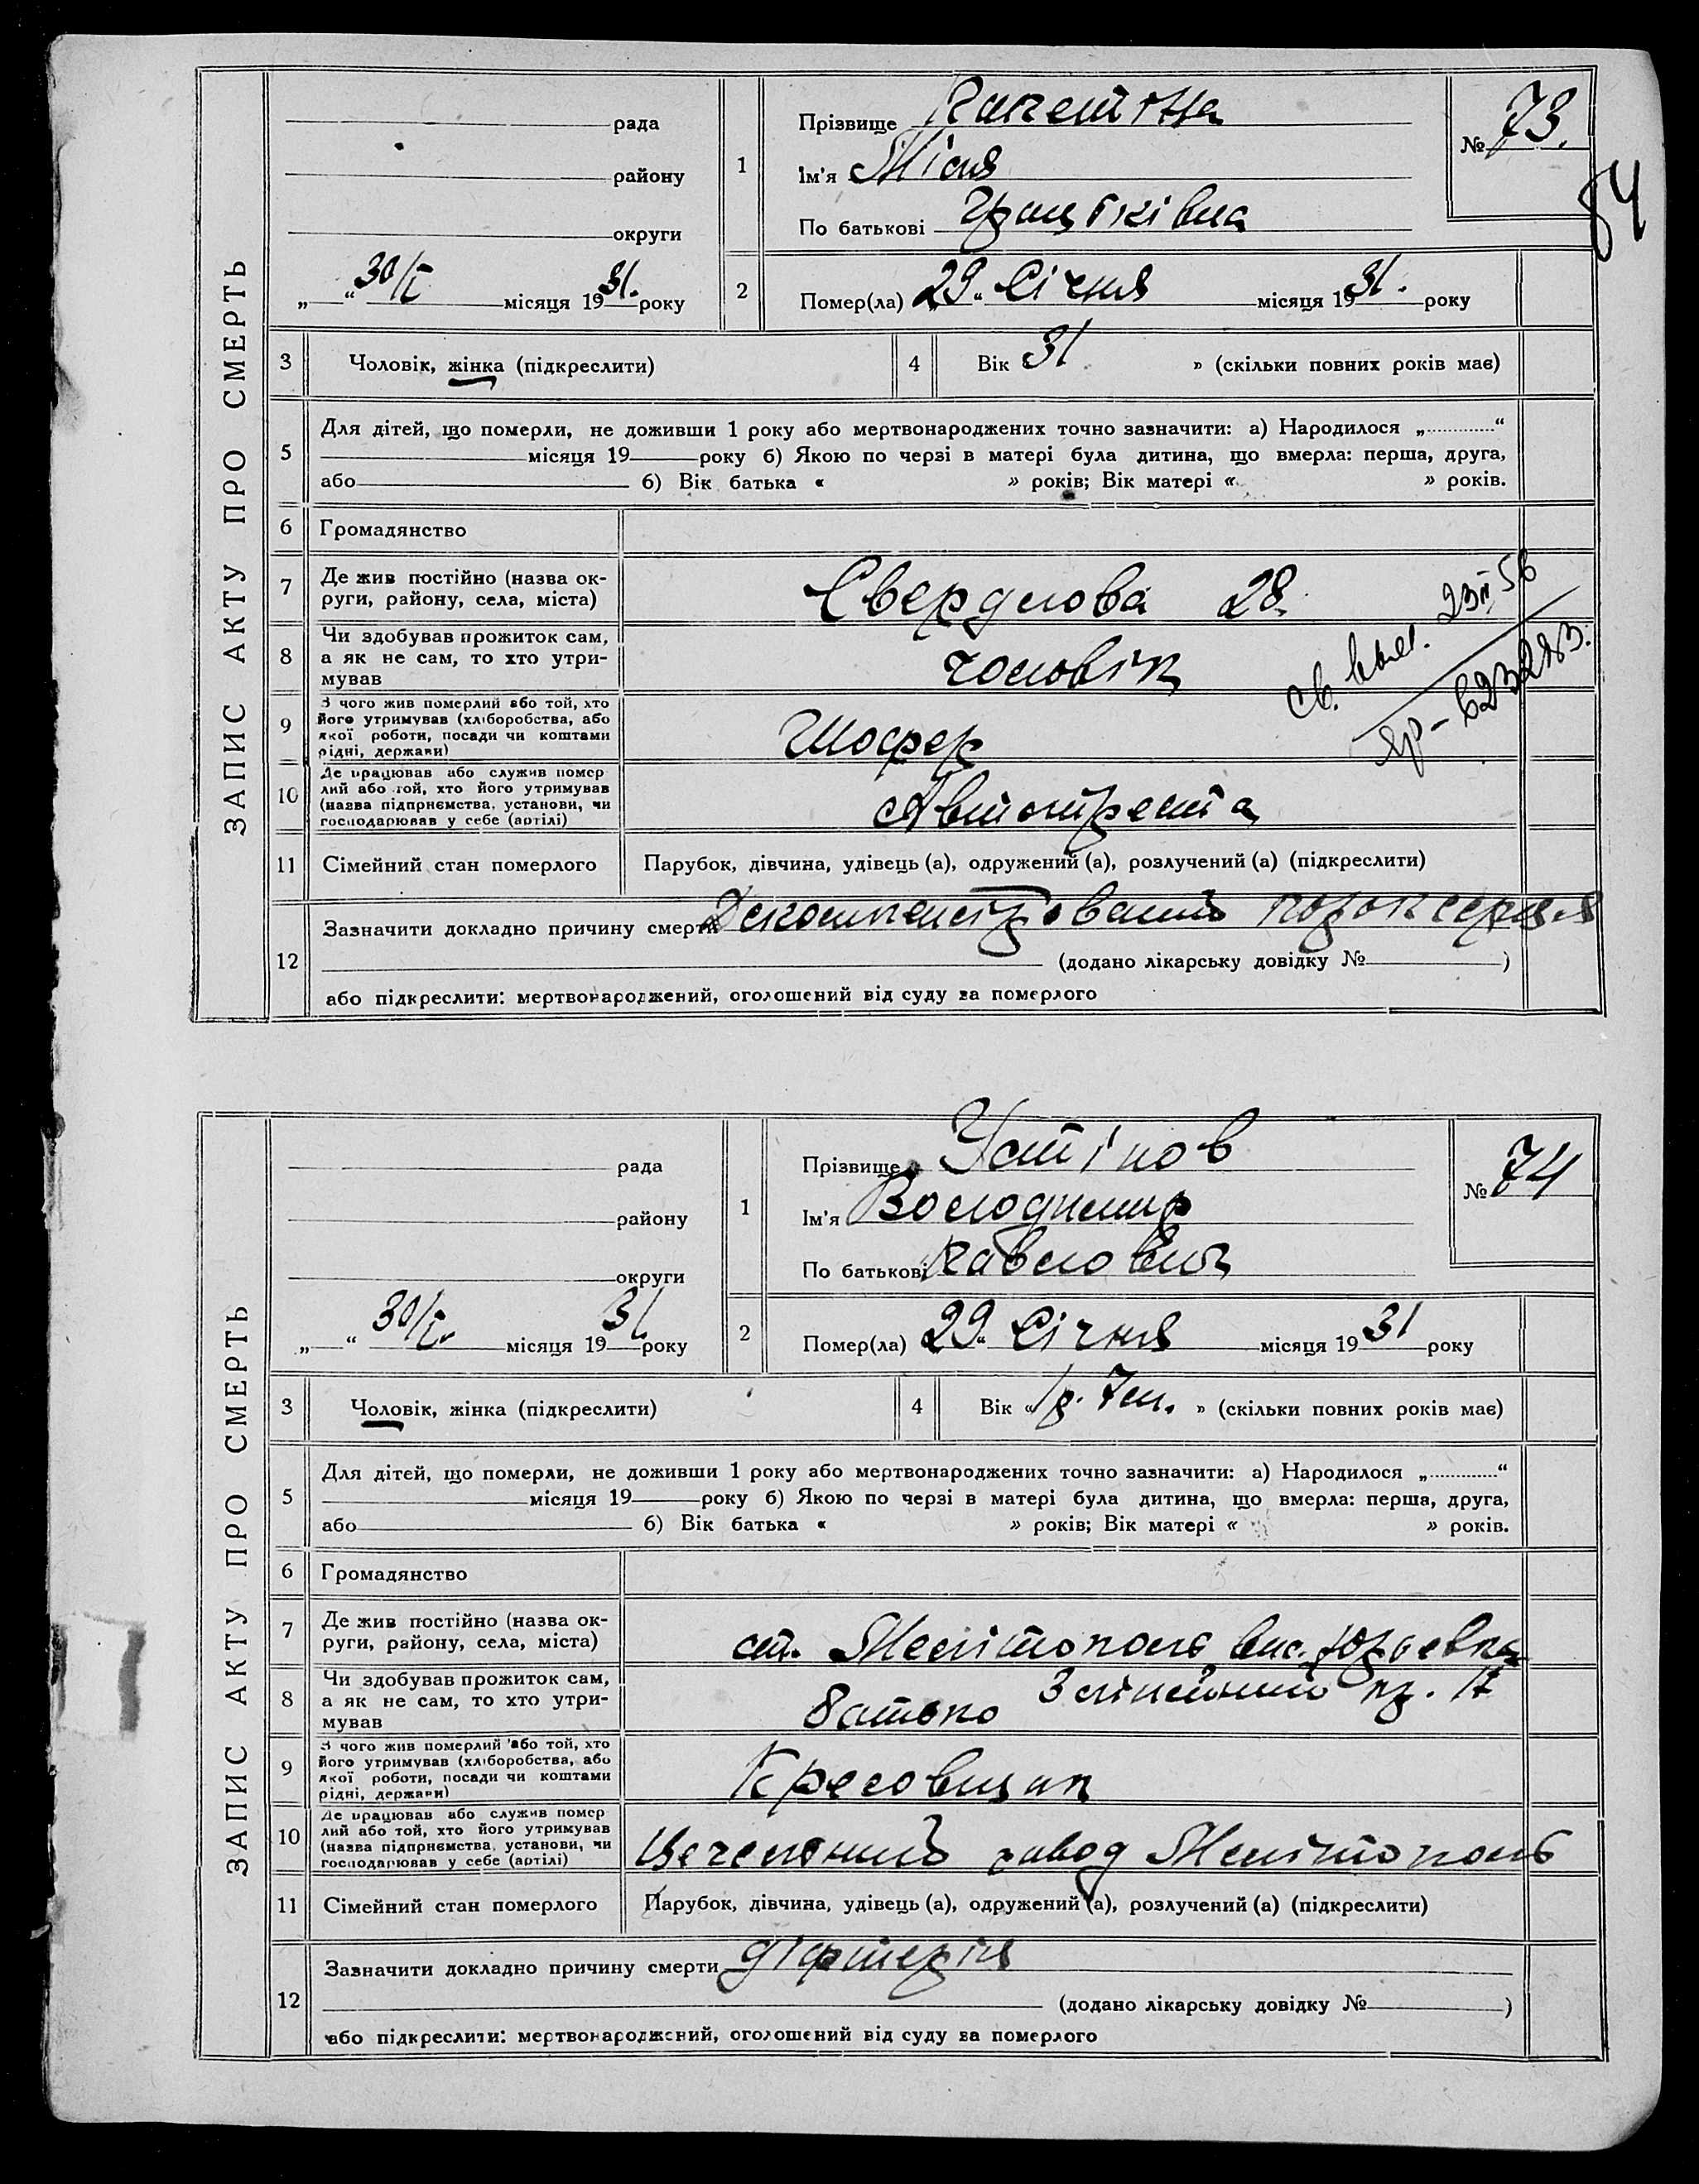 ЗАПИС АКТУ ПРО СМЕРТЬ
рада
району
округи
„ “ 30/I місяця 1931. року
1
Прізвище
Ім'я
По батькові
№ 73.
84
2
Помер(ла) „29“ Січня місяця 1931. року
3
Чоловік, жінка (підкреслити)
4
Вік 31 » (скільки повних років має)
5
Для дітей, що померли, не доживши 1 року або мертвонароджених точно зазначити: а) Народилося „ “
місяця 19 року б) Якою по черзі в матері була дитина, що вмерла: перша, друга,
або б) Вік батька « » років; Вік матері « » років.
6
Громадянство
7
Де жив постійно (назва ок-
руги, району, села, міста)
Свердлова 28
8
Чи здобував прожиток сам,
а як не сам, то хто утри-
мував
чоловік
9
З чого жив померлий або той, хто
його утримував (хліборобства, або
якої роботи, посади чи коштами
рідні, держави)
Шофер
10
Де працював або служив помер
лий або той, хто його утримував
(назва підприємства, установи, чи
господарював у себе (артілі)
Автотреста
св. выд. 23/II 56
11
Сімейний стан померлого
Парубок, дівчина, удівець (а), одружений (а), розлучений (а) (підкреслити)
12
Зазначити докладно причину смерти порок серця
(додано лікарську довідку № )
або підкреслити: мертвонароджений, оголошений від суду за померлого
ЗАПИС АКТУ ПРО СМЕРТЬ
рада
району
округи
„ “ 30/I. місяця 1931. року
1
Прізвище Устінов
Ім'я Володимир
По батькові Павлович
№ 74
2
Помер(ла) „29“ Січня місяця 1931 року
3
Чоловік, жінка (підкреслити)
4
Вік « 1 р. 7 м. » (скільки повних років має)
5
Для дітей, що померли, не доживши 1 року або мертвонароджених точно зазначити: а) Народилося „ “
місяця 19 року б) Якою по черзі в матері була дитина, що вмерла: перша, друга,
або б) Вік батька « » років; Вік матері « » років.
6
Громадянство
7
Де жив постійно (назва ок-
руги, району, села, міста)
ст. Мелітополь вис. Юрьевка
8
Чи здобував прожиток сам,
а як не сам, то хто утри-
мував
3 лінейний пр. 17
Батько
9
З чого жив померлий або той, хто
його утримував (хліборобства, або
якої роботи, посади чи коштами
рідні, держави)
10
Де працював або служив помер
лий або той, хто його утримував
(назва підприємства, установи, чи
господарював у себе (артілі)
завод Мелітополь
11
Сімейний стан померлого
Парубок, дівчина, удівець (а), одружений (а), розлучений (а) (підкреслити)
12
Зазначити докладно причину смерти діфтерія
(додано лікарську довідку № )
або підкреслити: мертвонароджений, оголошений від суду за померлого